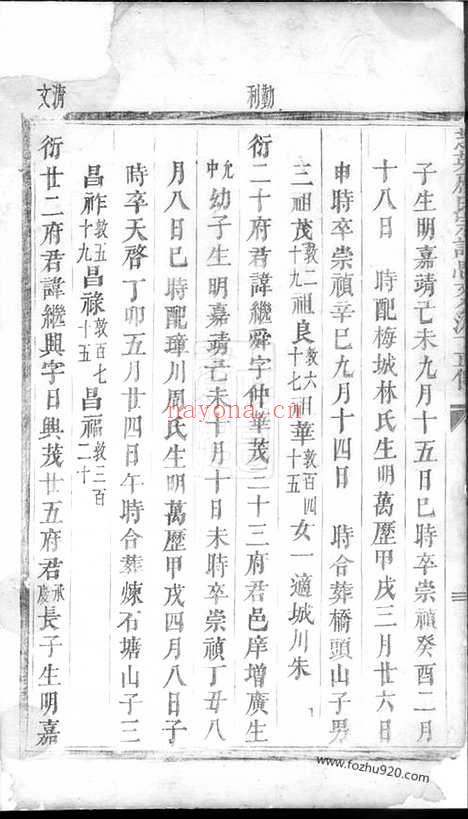 勤利
濟文
子生明嘉靖己未九月十五日巳時卒崇禎癸酉二月
十八日 時配梅城林氏生明萬歷甲戌三月廿六日
申時卒崇禎辛巳九月十四日 時合葬橋頭山子男
三祖茂敦二十九祖良敦六十七祖華敦百四十五女一適城川朱
衍二十府君諱繼舜字仲華茂三十三府君邑庠增廣生
允中幼子生明嘉靖己未十月十日未時卒崇禎丁丑八
月八日巳時配璋川周氏生明萬歷甲戌四月八日子
時卒天啓丁卯五月廿四日午時合葬煉石塘山子三
昌祚敦五十九昌祿敦百七十五昌福敦三百二十
衍廿二府君諱繼興字日興茂廿五府君承慶長子生明嘉
nayona.cn
www.fozhu920.com